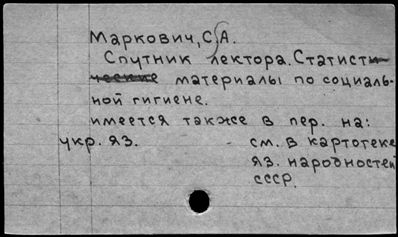 Маркович, С.А.
Спутник лектора. Статисти-
ческие материалы по социаль-
ной гигиене.
имеется также в пер. на:
укр. яз. - см. в картотеке
яз. народностей
СССР.